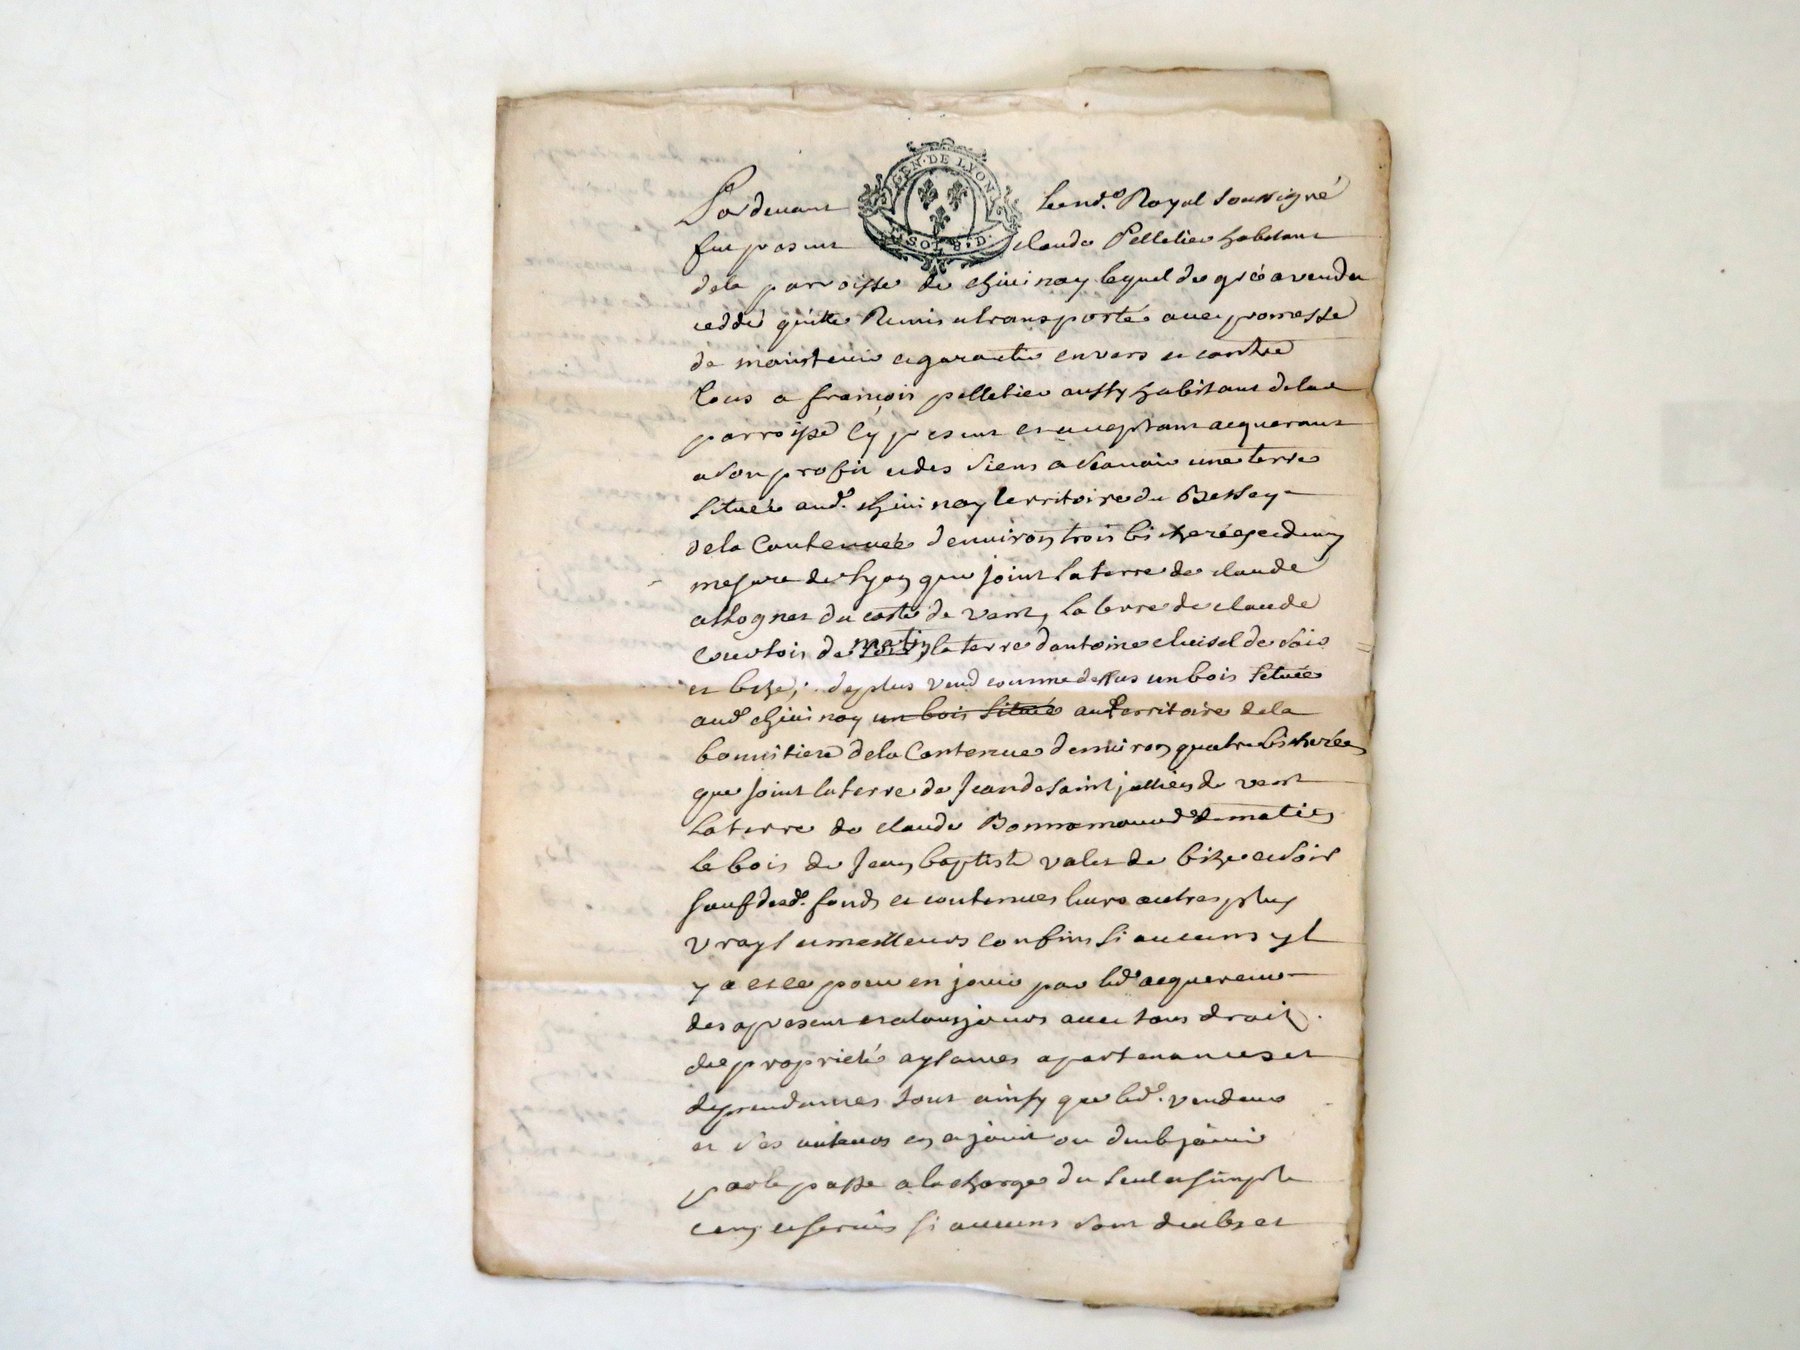 GEN. DE LYON
SOLS. D.
Pardevant le nore. Royal soussigné
fut present Claude Pelletier habitant
dela parroisse de chivinay lequel de gré a vendu
ceddé quitte Remis et transporté avec promesse
de maintenir et garantir envers et contre
tous a françois pelletier aussy habitant de lad
parroisse icy present et acceptant acquerant
a son profit et des siens a scavoir une terre
Située aud. chivinay territoire du Bessey
dela Contenue d'environ trois bicherées
mesure de lyon que joint la terre de claude
du costé de vent, la terre de claude
Courtois de matin, la terre d'antoine de soir
et bize, de plus vend comme dessus un bois Située
aud. chivinay un bois Située aud territoire dela
dela Contenue d'environ quatre bicherées
que joint la terre de Jean de saint jullien de vent
la terre de claude Bonnamour de matin
le bois de Jean baptiste valet de bize et soir
sauf desd. fonds et contenues leurs autres plus
vrays et meilleurs confins si aucuns y
y a et ce pour en jouir par led. acquereur
des a present et a tousjours avec tous droit
de propriété aysances apartenances et
dependances tout ainsy que led. vendeur
et ses auteurs en a jouit ou deub jouir
par le passe a la charge du seul et simple
cens et servis si aucuns sont deubs et